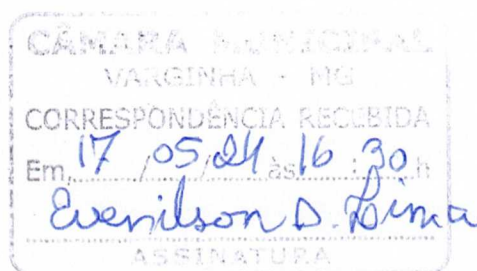 CÂMARA MUNICIPAL
VARGINHA - MG
CORRESPONDÊNCIA RECEBIDA
Em, 17 / 05 / 24 às 16 : 30 h
Evenilson D. Lima
ASSINATURA